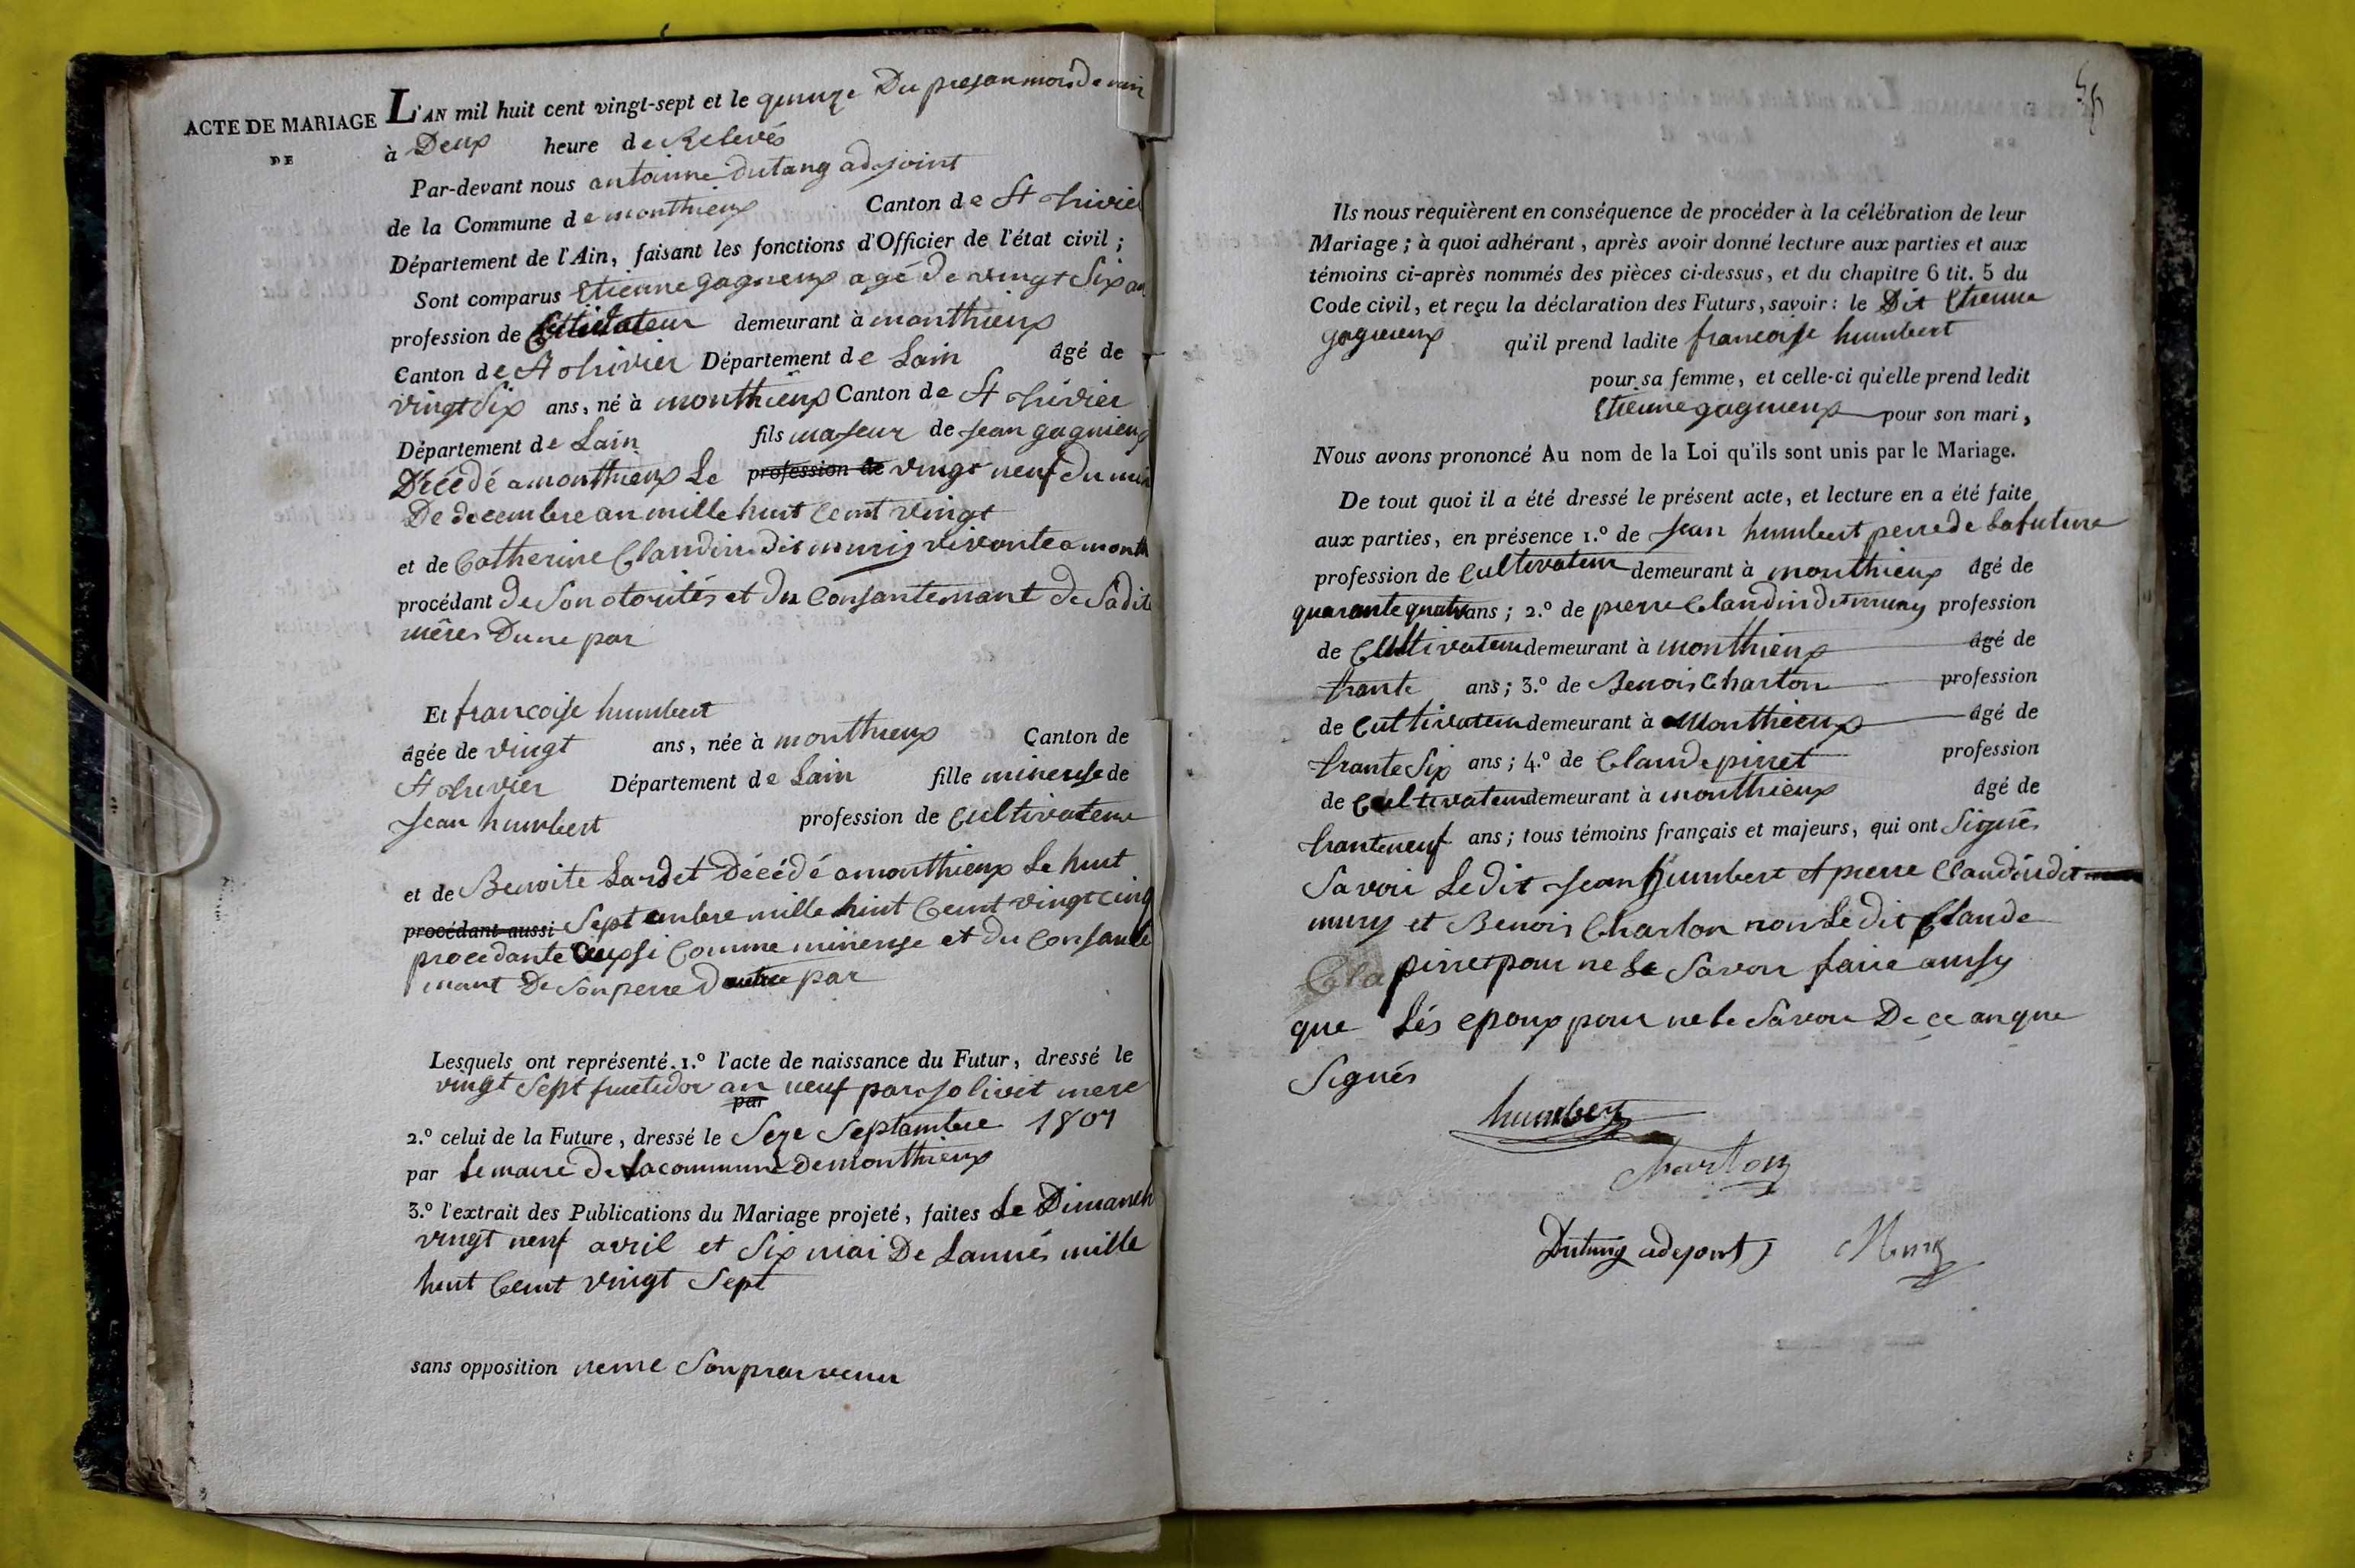 ACTE DE MARIAGE
DE
L'AN mil huit cent vingt-sept et le quinze Du presan mois de mai
à Deux heure de Relevés
Par-devant nous antoinne dutang adjoint
de la Commune de monthieux Canton de St trivier
Département de l'Ain, faisant les fonctions d'Officier de l'état civil ;
Sont comparus Etienne gagneux agé de vingt Six an
profession de Cultivateur demeurant à monthieux
Canton de St trivier Département de Lain âgé de
vingt Six ans, né à monthieux Canton de St trivier
Département de Lain fils majeur de jean gagnieux
Décédé a monthieux Le profession de vingt neuf du moi
De decembre an mille huit Cent vingt
et de Catherine Claudin dit mury vivante a month
procédant de Son otorités et du Consantemant de Sa dite
mêres Dune par
Et francoise humbert
âgée de vingt ans, née à monthieux Canton de
St trivier Département de Lain fille minerese de
Jean humbert profession de Cultivateur
et de Benoite Lardet Décédé a monthieux Le huit
procédant aussi Septembre mille huit Cent vingt cinq
procedante aupsi Comme minerese et du Consante
mant De Son perre D autre par
Lesquels ont représenté 1.º l'acte de naissance du Futur, dressé le
vingt Sept fructidor an neuf par jolivet mere
par
2.º celui de la Future, dressé le Seze Septambre 1807
par Le maire de La commune de monthieux
3.º l'extrait des Publications du Mariage projeté, faites Le Dimanch
vingt neuf avril et Six mai De Lannés mille
huit Cent vingt Sept
sans opposition neme Son prarvenu
Ils nous requièrent en conséquence de procéder à la célébration de leur
Mariage ; à quoi adhérant, après avoir donné lecture aux parties et aux
témoins ci-après nommés des pièces ci-dessus, et du chapitre 6 tit. 5 du
Code civil, et reçu la déclaration des Futurs, savoir : le Dit Etienne
gagneux qu'il prend ladite francoise humbert
pour sa femme, et celle-ci qu'elle prend ledit
Etienne gagnieux pour son mari,
Nous avons prononcé Au nom de la Loi qu'ils sont unis par le Mariage.
De tout quoi il a été dressé le présent acte, et lecture en a été faite
aux parties, en présence 1.º de Jean humbert perre de La future
profession de Cultivateur demeurant à monthieux âgé de
quarante quatre ans ; 2.º de pierre Claudin dit mury profession
de Cultivateur demeurant à monthieux âgé de
trante ans ; 3.º de Benois Charton profession
de Cultivateur demeurant à Monthieux âgé de
trante Six ans ; 4.º de Claude pirret profession
de Cultivateur demeurant à monthieux âgé de
trante neuf ans ; tous témoins français et majeurs, qui ont Signés
Savoir Le dit Jean humbert et pierre Claudin dit
mury et Benois Charton non Le dit Claude
pirret pour ne Le Savoir faire aunsy
que Lés epoux pour ne le Savoir De ce anque
Signés
humbert
charton
Dutang adejont Mury